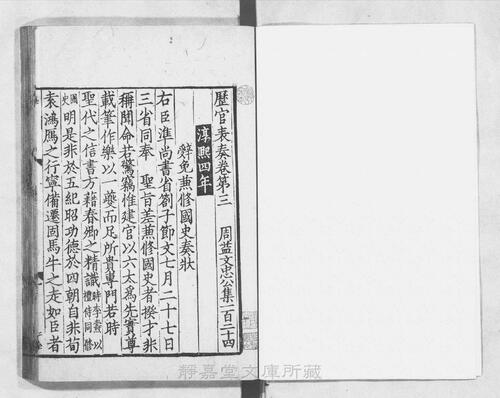 歷官表奏卷第三 周益文忠公集一百二十四
淳熙四年
辭免兼修國史奏狀
右臣準尚書省劄子節文七月二十七日
三省同奉 聖旨差兼修國史者揆才非
稱聞命若驚竊惟建官以六太爲先實尊
載筆作樂以一夔而足所貴專門若時
聖代之信書方藉春卿之精識時李燾以禮侍同修
國史明是非於五紀昭功德於四朝自非荀
袁鴻鴈之行寧備遷固馬牛之走如臣者
靜嘉堂文庫所藏